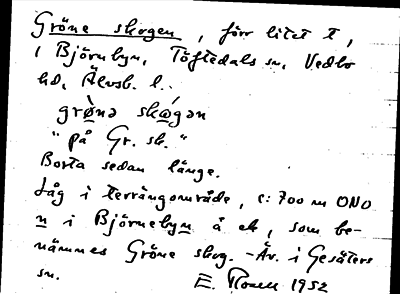 Gröne skogen, förr litet t,
i Björnbyn, Töftedals sn, Vedbo
hd, Älvsb. l.
grø̀nə skó̱gən
"på Gr. sk."
Borta sedan länge.
Låg i terrängområde, c:700 m ONO
n i Björnebyn å ek, som be-
nämnes Gröne skog. - Äv. i Gesäters
sn. E. Rosell 1952